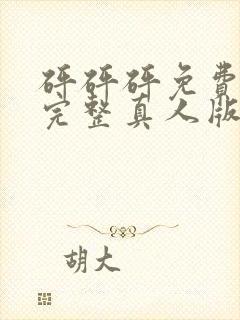 砰砰砰免费
完整真人版
胡大